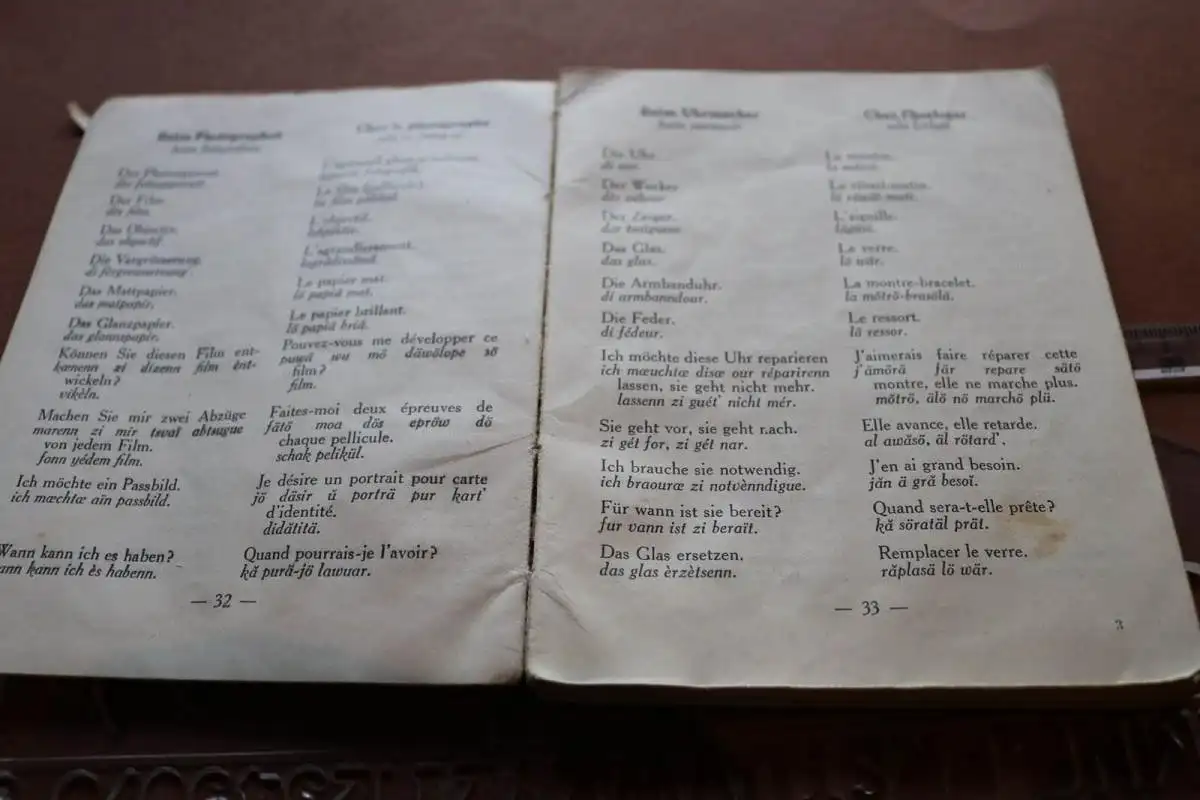 Beim Photographen
Chez le photographe
Der Film.
Das Objectiv.
das objectif.
L'objectif.
Die Vergrösserung.
L'agrandissement.
Das Mattpapier.
das matpapir.
Le papier mat.
lö papiä mat.
Das Glanzpapier.
das glannzpapir.
Le papier brillant.
lö papiä briă.
Können Sie diesen Film ent-
kœnenn zi dizenn film ènt-
wickeln?
vikèln.
Pouvez-vous me développer ce
puwä wu mö däwölope sö
film?
film.
Machen Sie mir zwei Abzüge
marenn zi mir tsvaï abtsugue
von jedem Film.
fonn yédem film.
Faites-moi deux épreuves de
fätö moa dös epröw dö
chaque pellicule.
schak pelikül.
Ich möchte ein Passbild.
ich mœchtœ aïn passbild.
Je désire un portrait pour carte
jö däsir ŭ porträ pur kart'
d'identité.
didătitä.
Wann kann ich es haben?
ann kann ich ès habenn.
Quand pourrais-je l'avoir?
kă purä-jö lawuar.
— 32 —
Beim Uhrmacher
Chez l'horloger
Die Uhr.
La montre.
Der Wecker
Le réveil-matin.
Der Zeiger.
L'aiguille.
Das Glas.
das glas.
Le verre.
lö wär.
Die Armbanduhr.
di armbanndour.
La montre-bracelet.
la mŏtrö-brasölä.
Die Feder.
di fédeur.
Le ressort.
lö ressor.
Ich möchte diese Uhr reparieren
ich mœuchtœ disœ our réparirenn
lassen, sie geht nicht mehr.
lassenn zi guét' nicht mér.
J'aimerais faire réparer cette
j'ämörä fär repare sätö
montre, elle ne marche plus.
mŏtrö, älö nö marchö plü.
Sie geht vor, sie geht nach.
zi gét for, zi gét nar.
Elle avance, elle retarde.
al awăsö, äl rötard'.
Ich brauche sie notwendig.
ich braourœ zi notvènndigue.
J'en ai grand besoin.
jăn ä gră besoĭ.
Für wann ist sie bereit?
fur vann ist zi beraït.
Quand sera-t-elle prête?
kă söratäl prät.
Das Glas ersetzen.
das glas èrzètsenn.
Remplacer le verre.
răplasä lö wär.
— 33 —
3